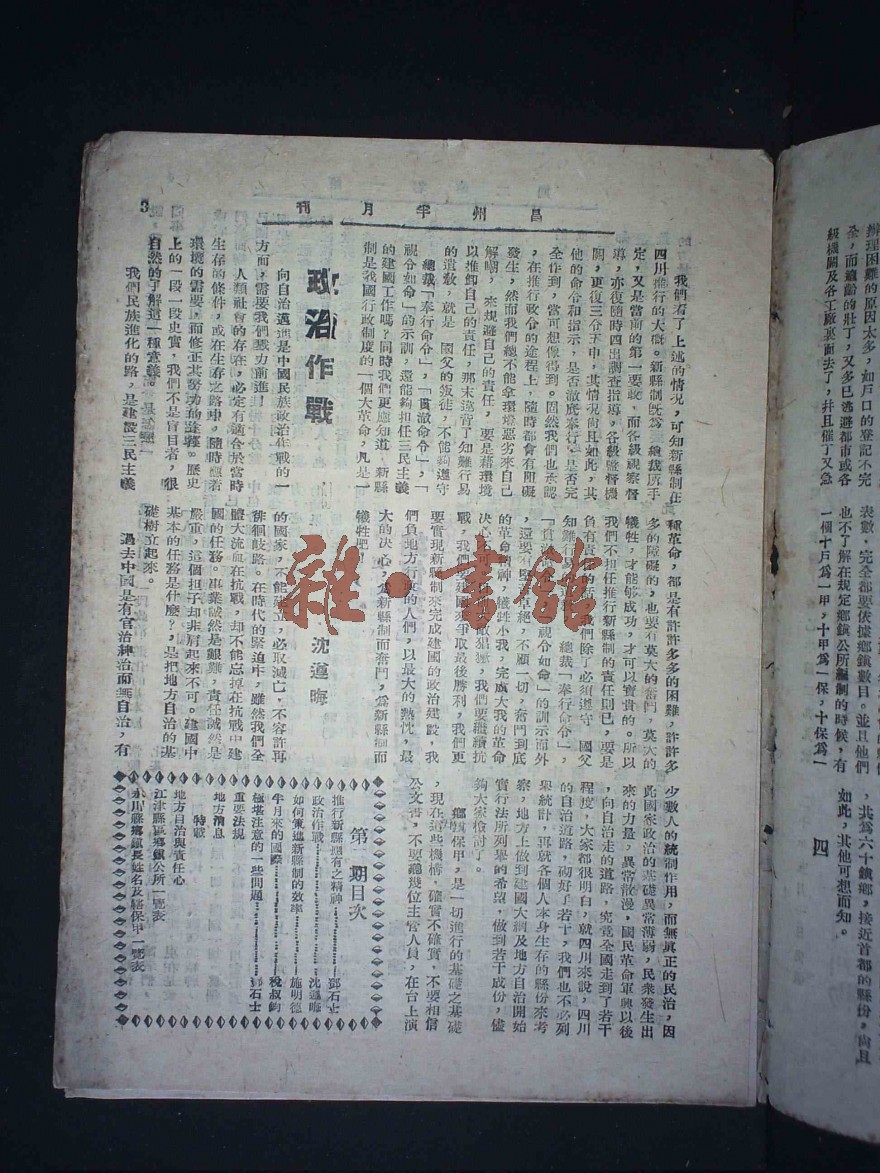 昌州半月刊
3
我們看了上述的情況，可知新縣制在
四川推行的大概。新縣制既為　總裁所手
定，又是當前的第一要政，而各級視察督
導，亦復隨時四出調查指導，各級監督機
關，更復三令五申，其情況尚且如此，其
他的命令和指示，是否澈底奉行，是否完
全作到，當可想像得到。固然我們也承認
，在推行政令的途程上，隨時都會有阻礙
發生，然而我們總不能拿環境惡劣來自己
解嘲，來規避自己的責任，要是藉環境
以推卸自己的責任，那末違背了知難行易
的遺教，就是　國父的叛徒，不能夠遵守
總裁「奉行命令」，「貫澈命令」，「
視令如命」的示訓，還能夠担任三民主義
的建國工作嗎？同時我們更應知道，新縣
制是我國行政制度的一個大革命，凡是一
種革命，都是有許許多多的困難，許許多
多的障礙的，也要有莫大的奮鬥，莫大的
犧牲，才能够成功，才可以寶貴的。所以
我們不担任推行新縣制的責任則已，要是
負有責
我們除了必須遵守　國父
知難行易
總裁「奉行命令」，
視令如命」的訓示而外
，還要
卓絕，不顧一切，奮鬥到底
的革命精神，犧牲小我，完成大我的革命
決心
我們要繼續抗
戰，我們要建國來爭取最後勝利，我們更
要實現新縣制來完成建國的政治建設，我
們負地方行政的人們，以最大的熱忱，最
大的決心，為新縣制而奮鬥，為新縣制而
犧牲吧
政治作戰
沈蓮晦
向自治邁進是中國民族政治作戰的一
方面，需要我們戮力前進！
人類社會的存在，必定有適合於當時
生存的條件，或在生存之路中，隨時應着
環境的需要，而修正其努力的途徑。歷史
上的一段一段史實，我們不是盲目者，很
自然的了解這一種意義
我們民族進化的路，是建設三民主義
的國家，不能建立，必取滅亡，不容許再
徘徊歧路。在時代的緊迫中，雖然我們全
體大流血在抗戰，却不能忘掉在抗戰中建
國的任務。事業誠然是艱難，責任誠然是
嚴重，這個担子却非肩起來不可。建國中
基本的任務是什麼？是把地方自治的基
礎樹立起來。
過去中國是有官治紳治而無自治，有
少數人的統制作用，而無眞正的民治，因
此國家政治的基礎異常薄弱，民衆發生出
來的力量，異常散漫，國民革命軍興以後
，向自治走的道路，究竟全國走到了若干
程度，大家都很明白，就四川來說，四川
的自治道路，砌好了若干，我們也不必列
舉統計，再就各個人本身生存的縣份來考
察，地方上做到建國大綱及地方自治開始
實行法所列舉的希望，做到若干成份，儘
夠大家檢討了。
鄉鎮保甲，是一切進行的基礎之基礎
，現在這些機構，確實不確實，不要相信
公文書，不要聽幾位主管人員，在台上演
第一期目次
推行新縣制應有之精神………鄧石士
政治作戰………沈蓮晦
如何策進新縣制的效率………施明德
半月來的國際………稅叔鈞
極堪注意的一些問題………鄧石士
重要法規
地方消息
特載
地方自治與責任心
江津縣區鄉鎮公所一覽表
永川縣鄉鎮長姓名及轄保甲一覽表
辦理困難的原因太多，如戶口的登記不完
全，而適齡的壯丁，又多已逃避都市或各
級機關及各工廠裏面去了，幷且催丁又急
表數。完全都要依據鄉鎮數目。並且他們
也不了解在規定鄉鎮公所編制的時候，有
一個十戶爲一甲，十甲爲一保，十保爲一
，共爲六十鎮鄉，接近首都的縣份，尚且
如此，其他可想而知。
四
雜·書館